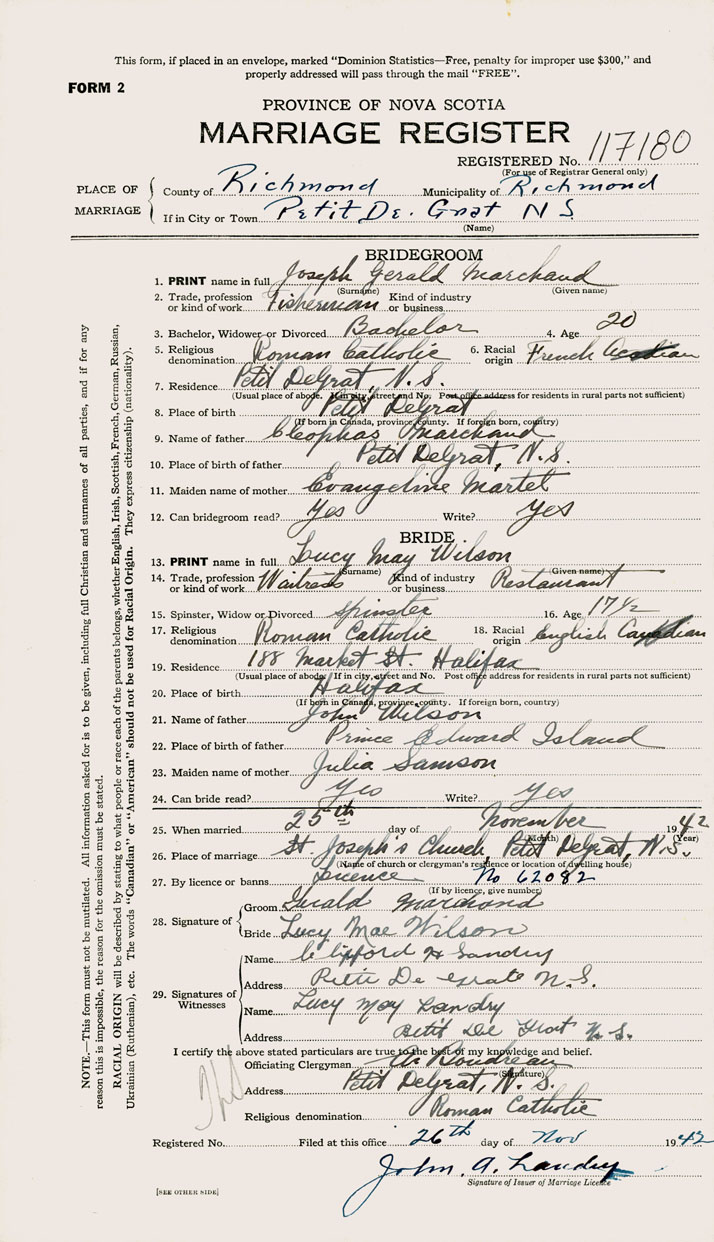 This form, if placed in an envelope, marked "Dominion Statistics—Free, penalty for improper use $300," and
properly addressed will pass through the mail "FREE".
FORM 2
PROVINCE OF NOVA SCOTIA
MARRIAGE REGISTER
REGISTERED No. 117180
(For use of Registrar General only)
PLACE OF MARRIAGE
County of Richmond Municipality of Richmond
If in City or Town Petit De. Grat N S
(Name)
BRIDEGROOM
1. PRINT name in full Joseph Gerald Marchand
(Surname) (Given name)
2. Trade, profession or kind of work Fisherman Kind of industry or business
3. Bachelor, Widower or Divorced Bachelor 4. Age 20
5. Religious denomination Roman Catholic 6. Racial origin French Acadian
7. Residence Petit DeGrat, N.S.
(Usual place of abode. If in city, street and No. Post office address for residents in rural parts not sufficient)
8. Place of birth Petit DeGrat
(If born in Canada, province, county. If foreign born, country)
9. Name of father Cleophas Marchand
10. Place of birth of father Petit DeGrat, N.S.
11. Maiden name of mother Evangeline Martet
12. Can bridegroom read? Yes Write? Yes
BRIDE
13. PRINT name in full Lucy May Wilson
(Surname) (Given name)
14. Trade, profession or kind of work Waitress Kind of industry or business Restaurant
15. Spinster, Widow or Divorced Spinster 16. Age 17 1/2
17. Religious denomination Roman Catholic 18. Racial origin English Canadian
19. Residence 188 Market St. Halifax
(Usual place of abode. If in city, street and No. Post office address for residents in rural parts not sufficient)
20. Place of birth Halifax
(If born in Canada, province, county. If foreign born, country)
21. Name of father John Wilson
22. Place of birth of father Prince Edward Island
23. Maiden name of mother Julia Samson
24. Can bride read? Yes Write? Yes
25. When married 25th day of November 1942
(Month) (Year)
26. Place of marriage St. Joseph's Church, Petit DeGrat, N.S.
(Name of church or clergyman's residence or location of dwelling house)
27. By licence or banns Licence No 62082
(If by licence, give number)
28. Signature of
Groom Gerald Marchand
Bride Lucy Mae Wilson
29. Signatures of Witnesses
Name Clifford H Landry
Address Petit De grate N.S.
Name Lucy May Landry
Address Petit De Grat N.S.
I certify the above stated particulars are true to the best of my knowledge and belief.
Officiating Clergyman A. Boudreau
(Signature)
Address Petit DeGrat, N.S.
Religious denomination Roman Catholic
Registered No. Filed at this office 26th day of Nov 1942
John. A. Landry
Signature of Issuer of Marriage Licence
[SEE OTHER SIDE]
NOTE.—This form must not be mutilated. All information asked for is to be given, including full Christian and surnames of all parties, and if for any
reason this is impossible, the reason for the omission must be stated.
RACIAL ORIGIN will be described by stating to what people or race each of the parents belongs, whether English, Irish, Scottish, French, German, Russian,
Ukrainian (Ruthenian), etc. The words "Canadian" or "American" should not be used for Racial Origin. They express citizenship (nationality).